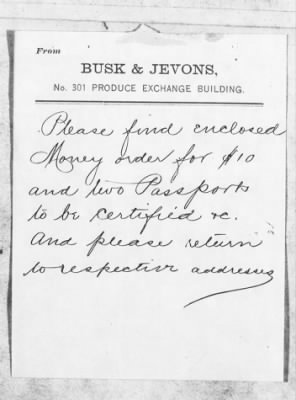 From
BUSK & JEVONS,
No. 301 PRODUCE EXCHANGE BUILDING.
Please find enclosed
Money order for $10
and two Passports
to be certified &c.
And please return
to respective addresses